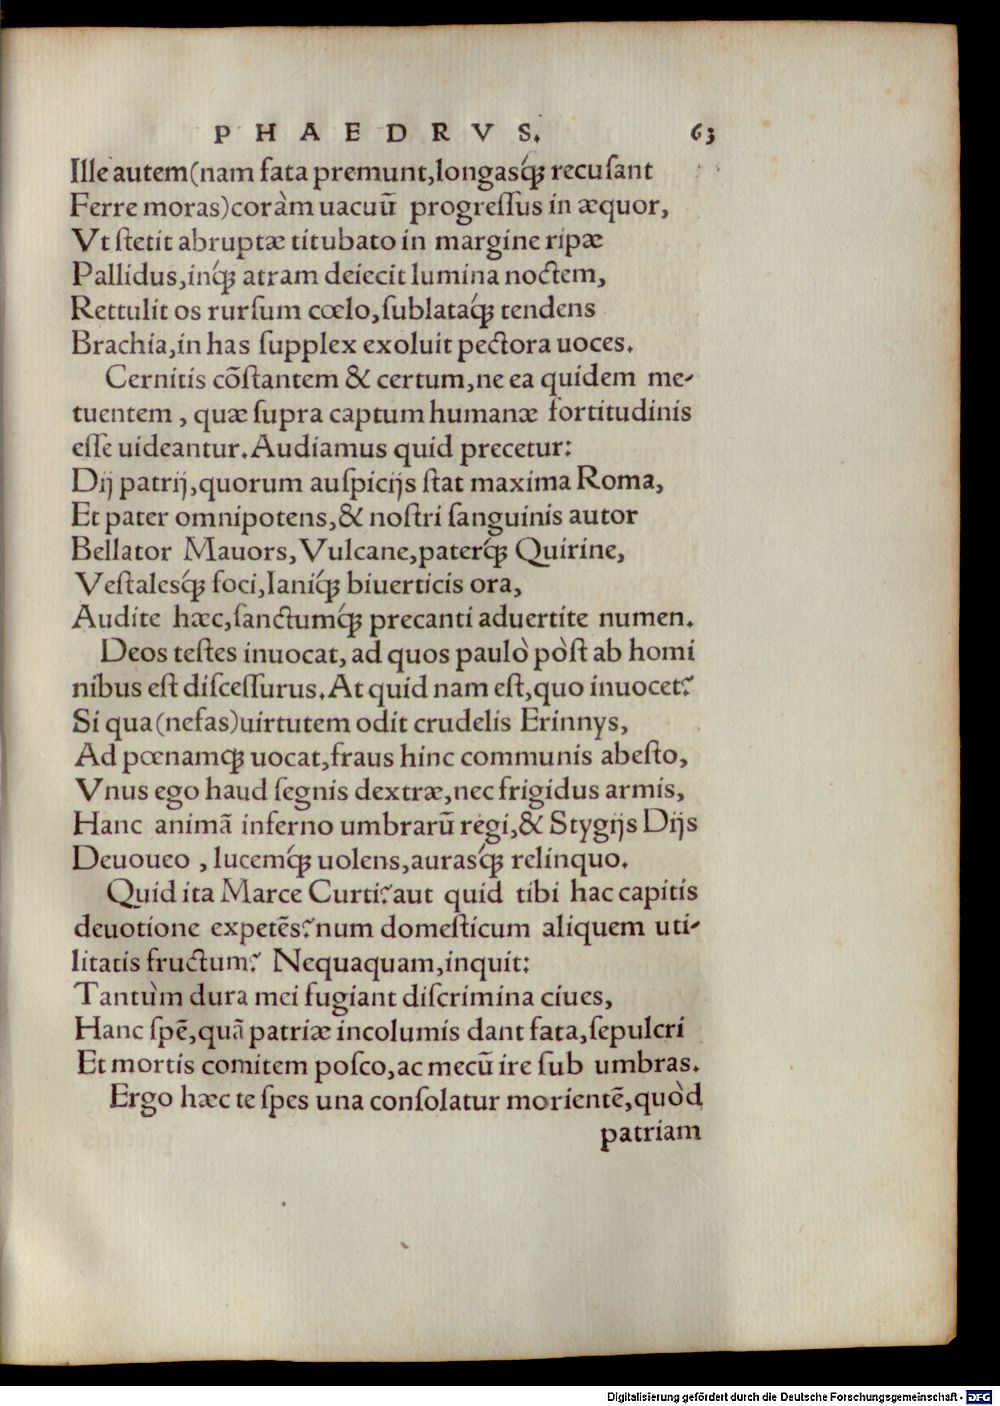 PHAEDRVS. 63
Ille autem(nam fata premunt,longasq́; recusant
Ferre moras)coràm uacuū progreſſus in æquor,
Vt ſtetit abruptæ titubato in margine ripæ
Pallidus,inq́; atram deiecit lumina noctem,
Rettulit os rurſum cœlo,ſublataq́; tendens
Brachia,in has ſupplex exoluit pectora uoces.
Cernitis cōſtantem & certum,ne ea quidem me-
tuentem, quæ ſupra captum humanæ fortitudinis
eſſe uideantur.Audiamus quid precetur:
Dij patrij,quorum auſpicijs ſtat maxima Roma,
Et pater omnipotens,& noſtri ſanguinis autor
Bellator Mauors,Vulcane,paterq́; Quirine,
Veſtalesq́; foci,Ianiq́; biuerticis ora,
Audite hæc,ſanctumq́; precanti aduertite numen.
Deos teſtes inuocat, ad quos paulò pòſt ab homi
nibus eſt diſceſſurus.At quid nam eſt,quo inuocet?
Si qua(nefas)uirtutem odit crudelis Erinnys,
Ad pœnamq; uocat,fraus hinc communis abeſto,
Vnus ego haud ſegnis dextræ,nec frigidus armis,
Hanc animā inferno umbrarū regi,& Stygijs Dijs
Deuoueo , lucemq́; uolens,aurasq́; relinquo.
Quid ita Marce Curti?aut quid tibi hac capitis
deuotione expetēs?num domeſticum aliquem uti-
litatis fructum? Nequaquam,inquit:
Tantùm dura mei fugiant diſcrimina ciues,
Hanc ſpē,quā patriæ incolumis dant fata,ſepulcri
Et mortis comitem poſco,ac mecū ire ſub umbras.
Ergo hæc te ſpes una conſolatur morientē,quòd
patriam
Digitalisierung gefördert durch die Deutsche Forschungsgemeinschaft - DFG